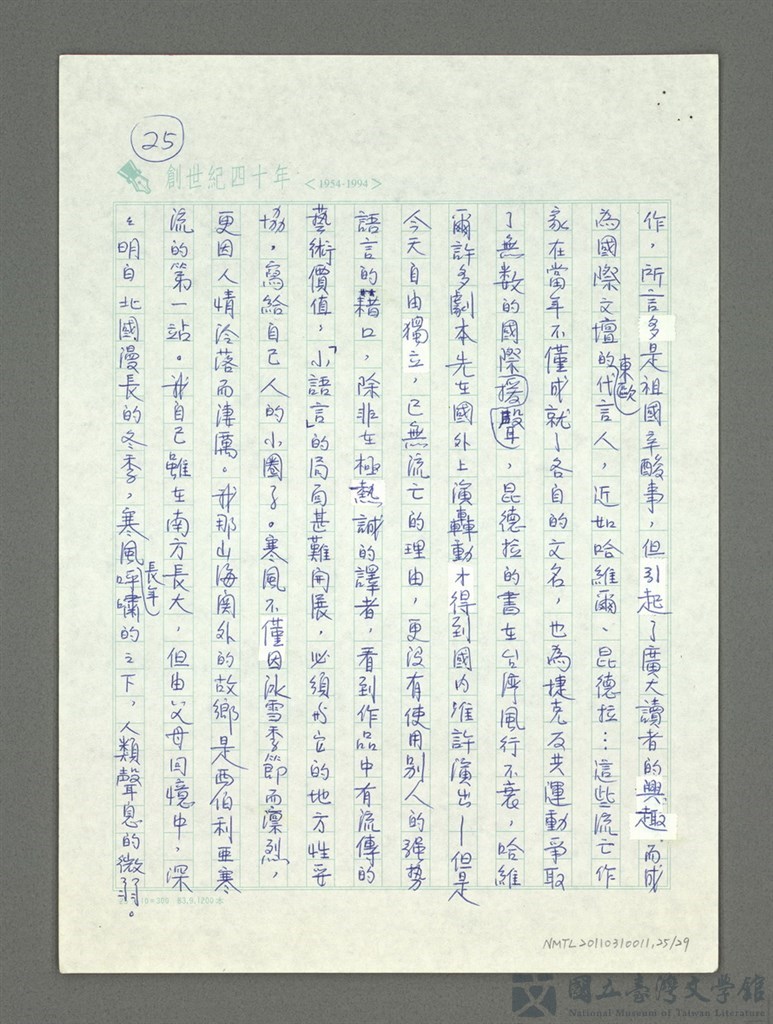 25
創世紀四十年
<1954-1994>
作，所言多是祖國辛酸事，但引起了廣大讀者的興趣，而成
為國際文壇的東歐代言人，近如哈維爾、昆德拉…這些流亡作
家在當年不僅成就了各自的文名，也為捷克反共運動爭取
了無数的國際援聲，昆德拉的書在台灣風行不衰，哈維
爾許多劇本先在國外上演轟動才得到國内准許演出—但是
今天自由獨立，已無流亡的理由，更没有使用别人的强势
語言的藉口，除非在極熱誠的譯者，看到作品中有流傳的
藝術價值，「小語言」的局面甚難開展，必須為它的地方性妥
協，寫給自己人的小圈子。寒風不僅因冰雪季節而凜烈，
更因人情冷落而淒厲。我那山海關外的故鄉是西伯利亜寒
流的第一站。我自己雖在南方長大，但由父母回憶中，深
深明白北國漫長的冬季，寒風長年呼嘯的之下，人類聲息的微弱。
NMTL20110310011,25/29
國立臺灣文學館
National Museum of Taiwan Literature